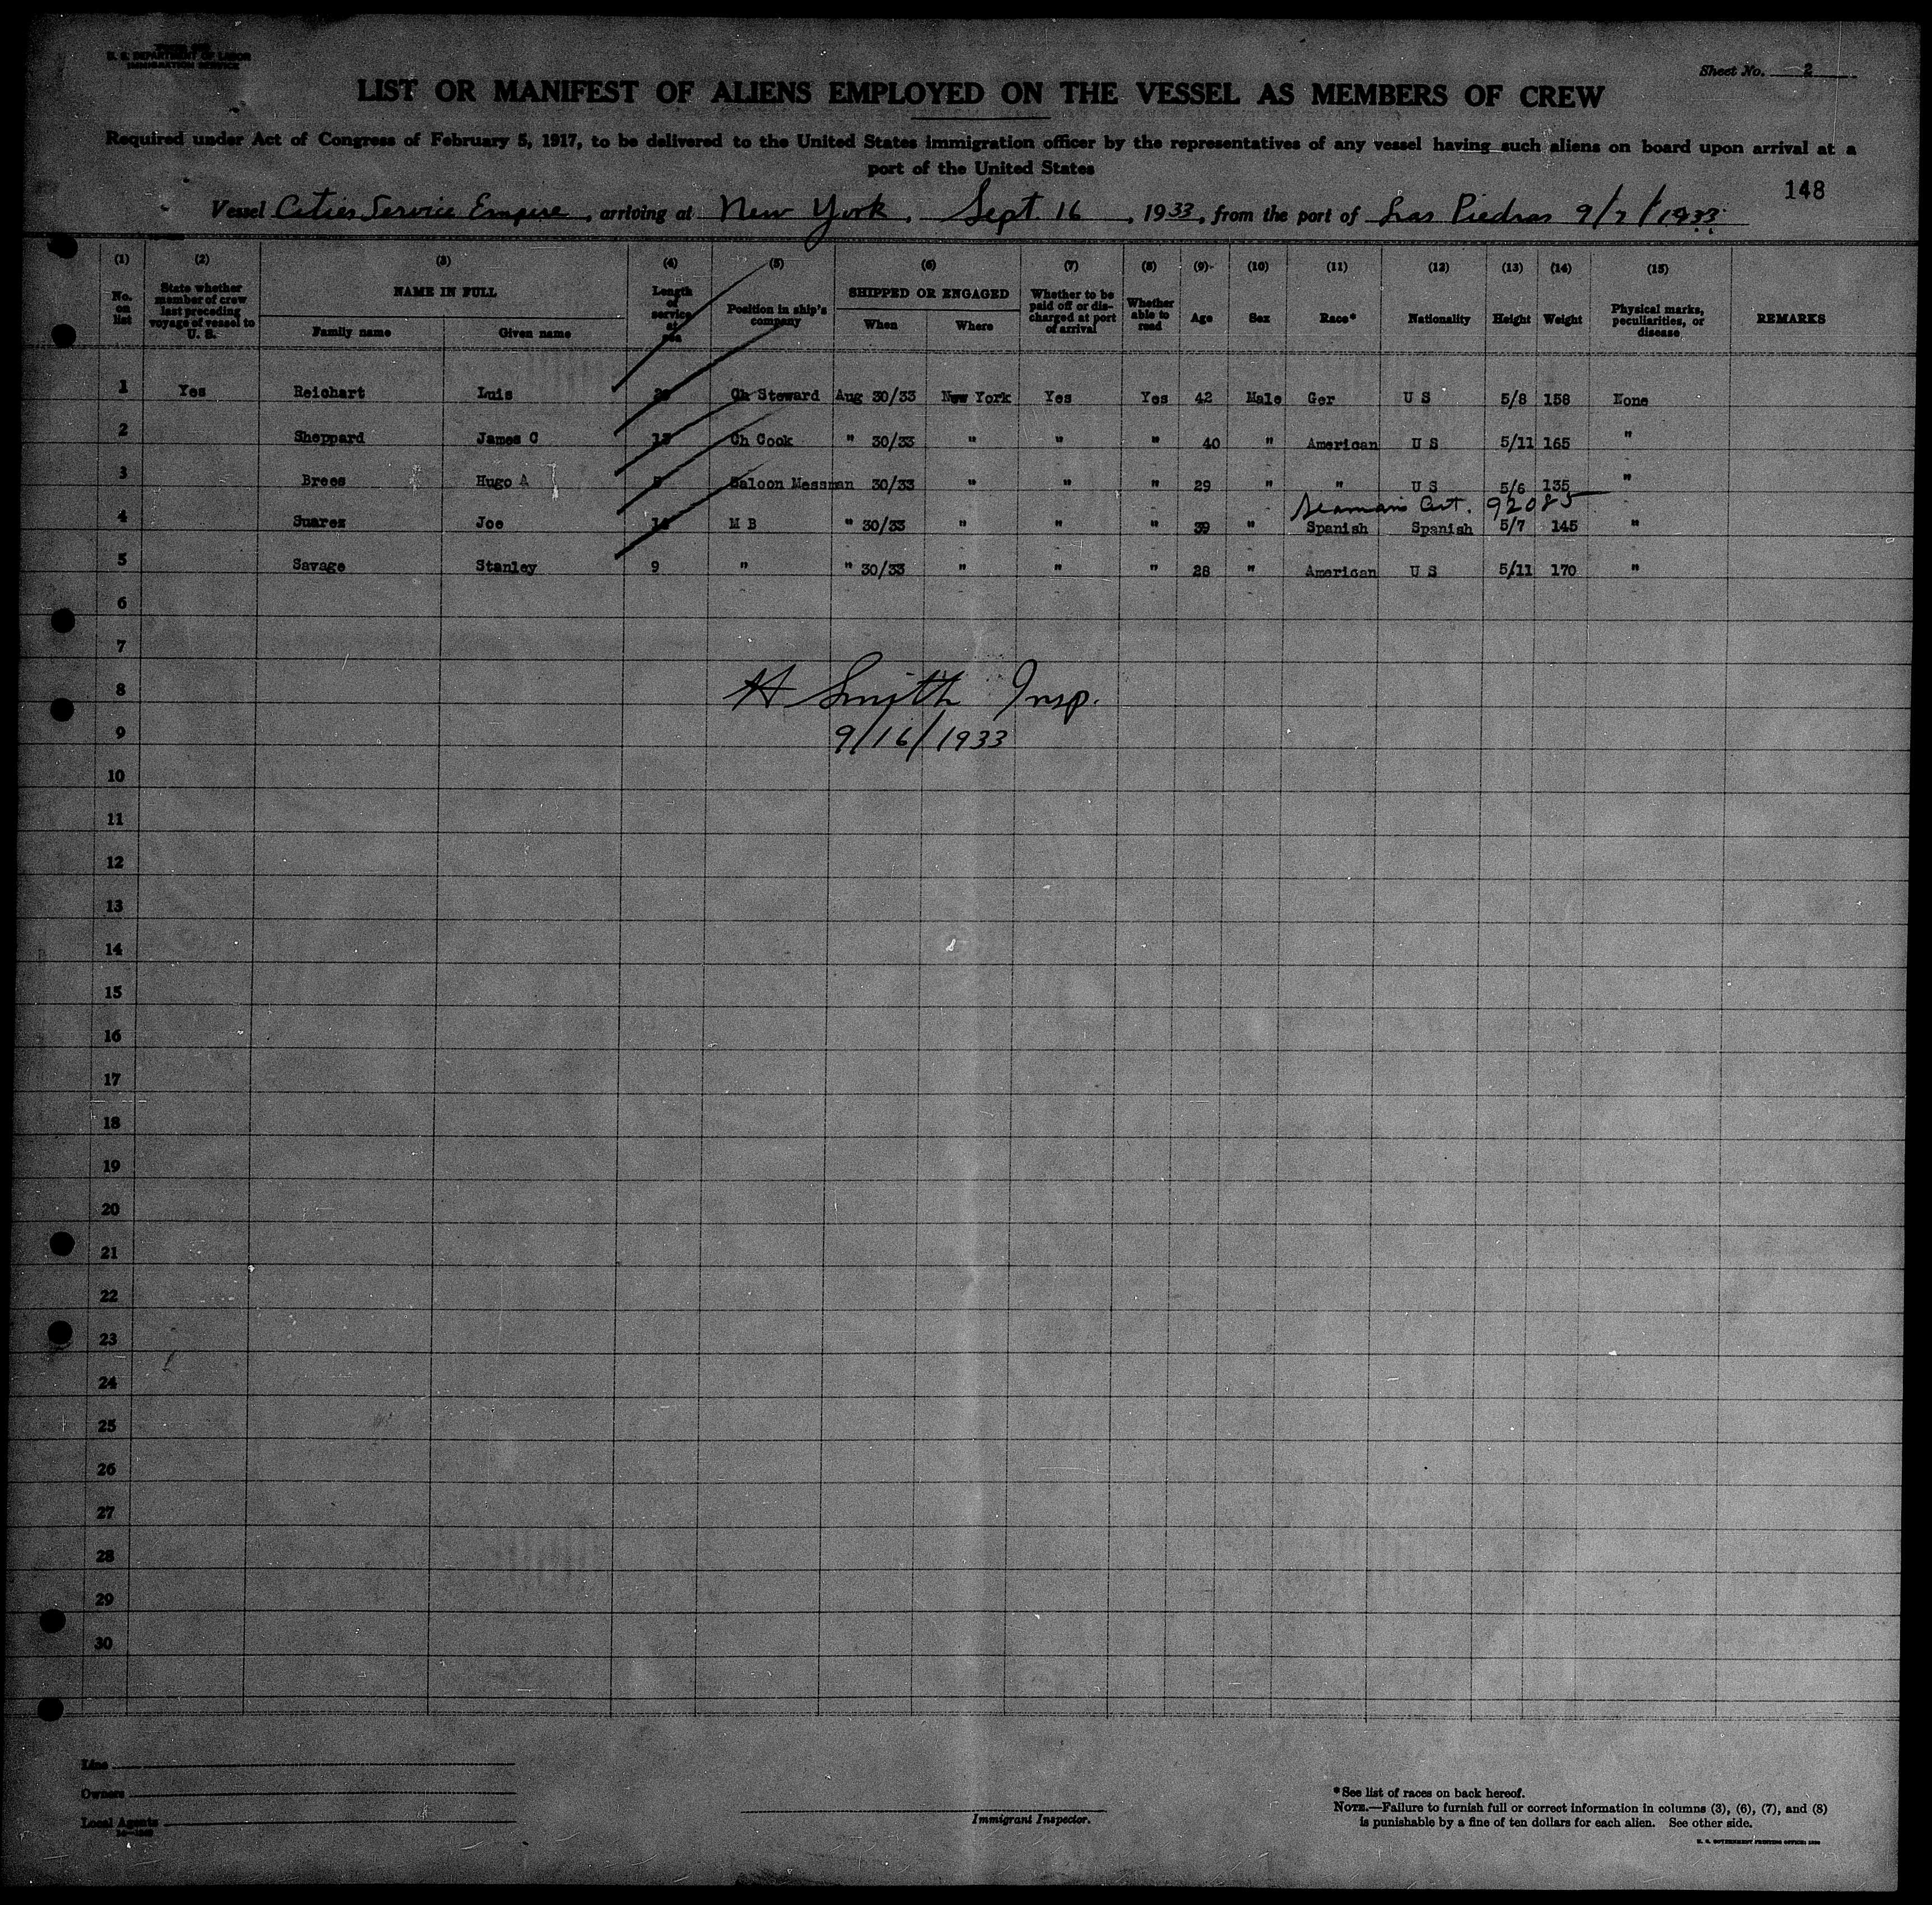 U. S. DEPARTMENT OF LABOR
IMMIGRATION SERVICE
Sheet No. 2
LIST OR MANIFEST OF ALIENS EMPLOYED ON THE VESSEL AS MEMBERS OF CREW
Required under Act of Congress of February 5, 1917, to be delivered to the United States immigration officer by the representatives of any vessel having such aliens on board upon arrival at a
port of the United States
148
Vessel Cities Service Empire, arriving at New York, Sept. 16, 1933, from the port of Las Piedras 9/7/1933
(1) (2) (3) (4) (5) (6) (7) (8) (9) (10) (11) (12) (13) (14) (15)
No. on list State whether member of crew last preceding voyage of vessel to U. S. NAME IN FULL Family name Given name Length of service at sea Position in ship's company SHIPPED OR ENGAGED When Where Whether to be paid off or discharged at port of arrival Whether able to read Age Sex Race* Nationality Height Weight Physical marks, peculiarities, or disease REMARKS
1 Yes Reichart Luis Ch Steward Aug 30/33 New York Yes Yes 42 Male Ger U S 5/8 158 None
2 Sheppard James C Ch Cook " 30/33 " " " 40 " American U S 5/11 165 "
3 Brees Hugo A Saloon Messman 30/33 " " " 29 " " U S 5/6 135 "
Seaman's Cert. 92085
4 Suarez Joe M B " 30/33 " " " 39 " Spanish Spanish 5/7 145 "
5 Savage Stanley 9 " " 30/33 " " " 28 " American U S 5/11 170 "
6
7
8
H Smith Insp.
9
9/16/1933
10
11
12
13
14
15
16
17
18
19
20
21
22
23
24
25
26
27
28
29
30
Line
Owners
Local Agents
Immigrant Inspector.
*See list of races on back hereof.
NOTE.—Failure to furnish full or correct information in columns (3), (6), (7), and (8)
is punishable by a fine of ten dollars for each alien. See other side.
U. S. GOVERNMENT PRINTING OFFICE: